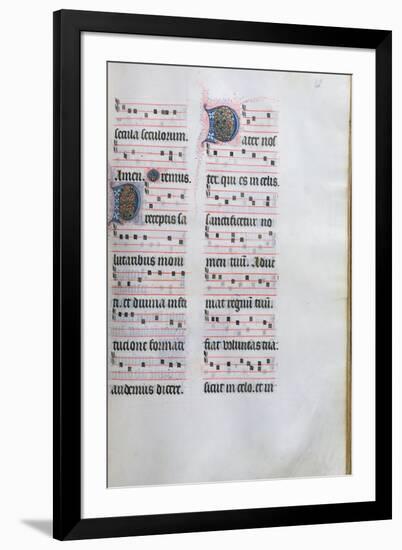 secula seculorum.
Amen. Oremus.
Preceptis sa
lutaribus moni
ti. et divina insti
tucione formati
audemus dicere.
Pater nos
ter. qui es in celis.
sanctificetur no
men tuu. Adve
niat regnu tuu.
fiat voluntas tua.
sicut in celo. et in